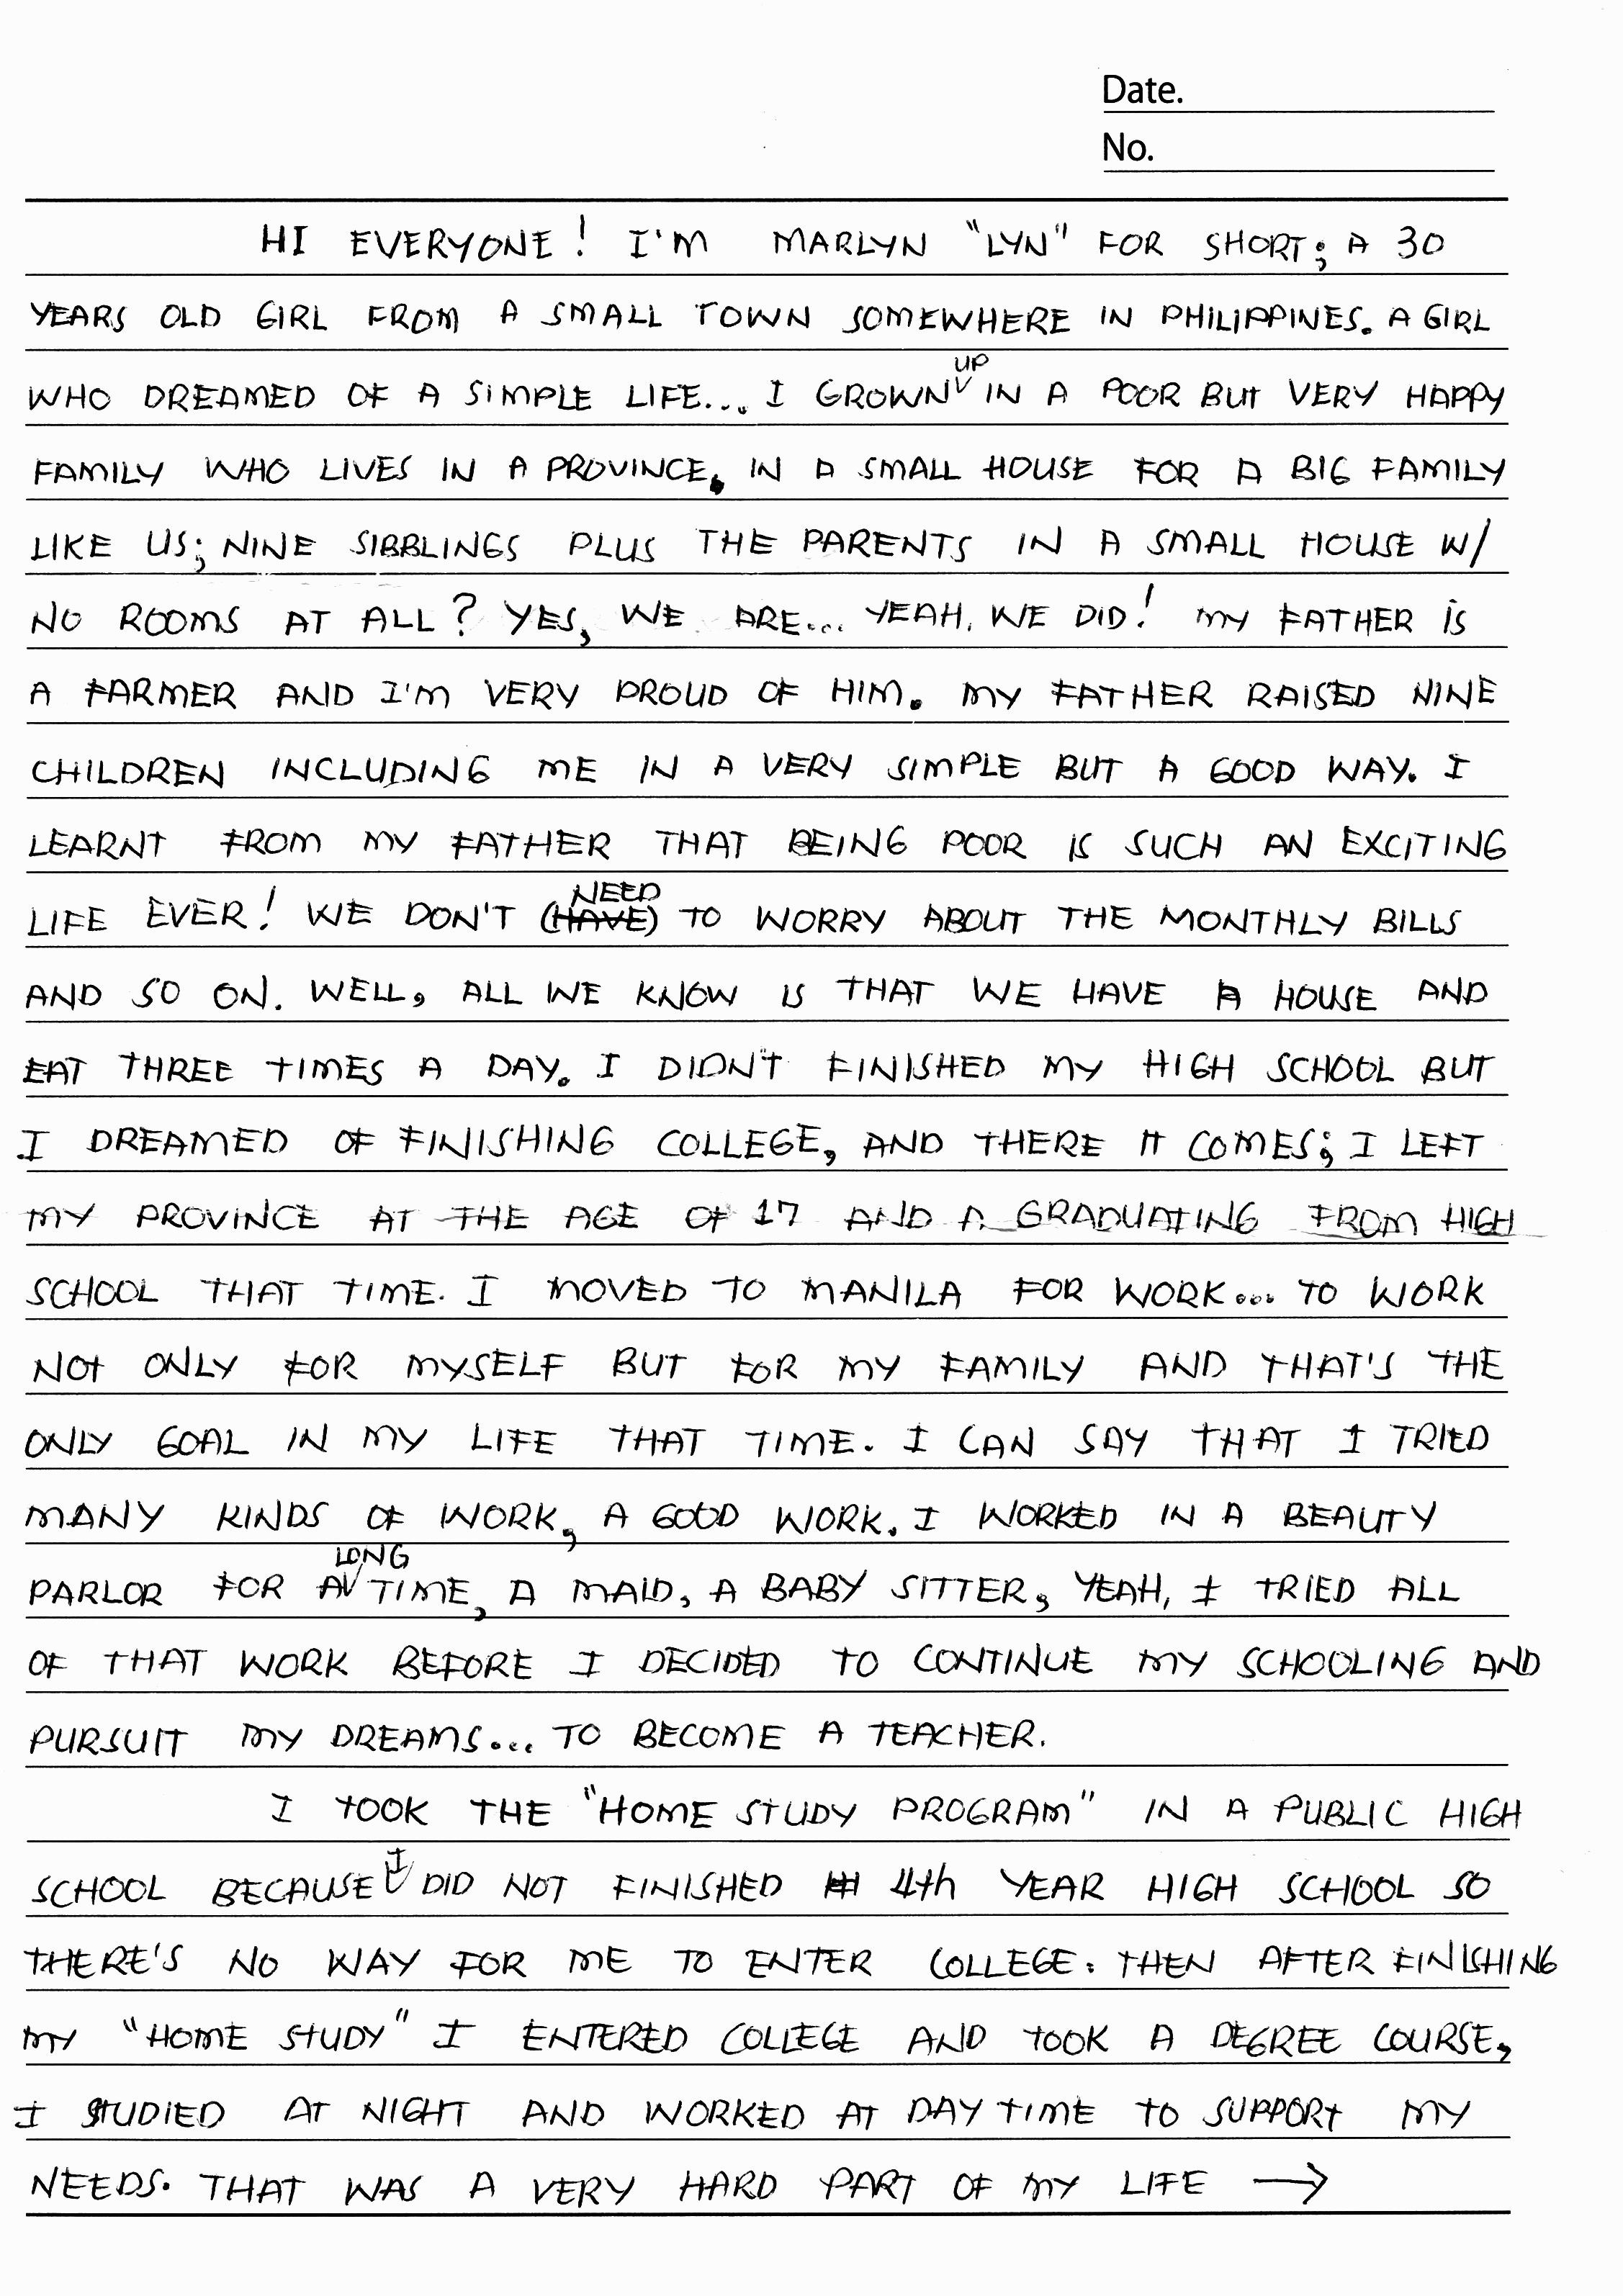 Date.
No.
HI EVERYONE! I'M MARLYN "LYN" FOR SHORT; A 30
YEARS OLD GIRL FROM A SMALL TOWN SOMEWHERE IN PHILIPPINES. A GIRL
WHO DREAMED OF A SIMPLE LIFE... I GROWN UP IN A POOR BUT VERY HAPPY
FAMILY WHO LIVES IN A PROVINCE. IN A SMALL HOUSE FOR A BIG FAMILY
LIKE US; NINE SIBBLINGS PLUS THE PARENTS IN A SMALL HOUSE W/
NO ROOMS AT ALL? YES, WE ARE... YEAH, WE DID! MY FATHER IS
A FARMER AND I'M VERY PROUD OF HIM. MY FATHER RAISED NINE
CHILDREN INCLUDING ME IN A VERY SIMPLE BUT A GOOD WAY. I
LEARNT FROM MY FATHER THAT BEING POOR IS SUCH AN EXCITING
LIFE EVER! WE DON'T (HAVE) NEED TO WORRY ABOUT THE MONTHLY BILLS
AND SO ON. WELL, ALL WE KNOW IS THAT WE HAVE A HOUSE AND
EAT THREE TIMES A DAY. I DIDN'T FINISHED MY HIGH SCHOOL BUT
I DREAMED OF FINISHING COLLEGE, AND THERE IT COMES; I LEFT
MY PROVINCE AT THE AGE OF 17 AND A GRADUATING FROM HIGH
SCHOOL THAT TIME. I MOVED TO MANILA FOR WORK... TO WORK
NOT ONLY FOR MYSELF BUT FOR MY FAMILY AND THAT'S THE
ONLY GOAL IN MY LIFE THAT TIME. I CAN SAY THAT I TRIED
MANY KINDS OF WORK, A GOOD WORK. I WORKED IN A BEAUTY
PARLOR FOR A LONG TIME, A MAID, A BABY SITTER, YEAH, I TRIED ALL
OF THAT WORK BEFORE I DECIDED TO CONTINUE MY SCHOOLING AND
PURSUIT MY DREAMS... TO BECOME A TEACHER.
I TOOK THE "HOME STUDY PROGRAM" IN A PUBLIC HIGH
SCHOOL BECAUSE I DID NOT FINISHED 4th YEAR HIGH SCHOOL SO
THERE'S NO WAY FOR ME TO ENTER COLLEGE. THEN AFTER FINISHING
MY "HOME STUDY" I ENTERED COLLEGE AND TOOK A DEGREE COURSE,
I STUDIED AT NIGHT AND WORKED AT DAY TIME TO SUPPORT MY
NEEDS. THAT WAS A VERY HARD PART OF MY LIFE →